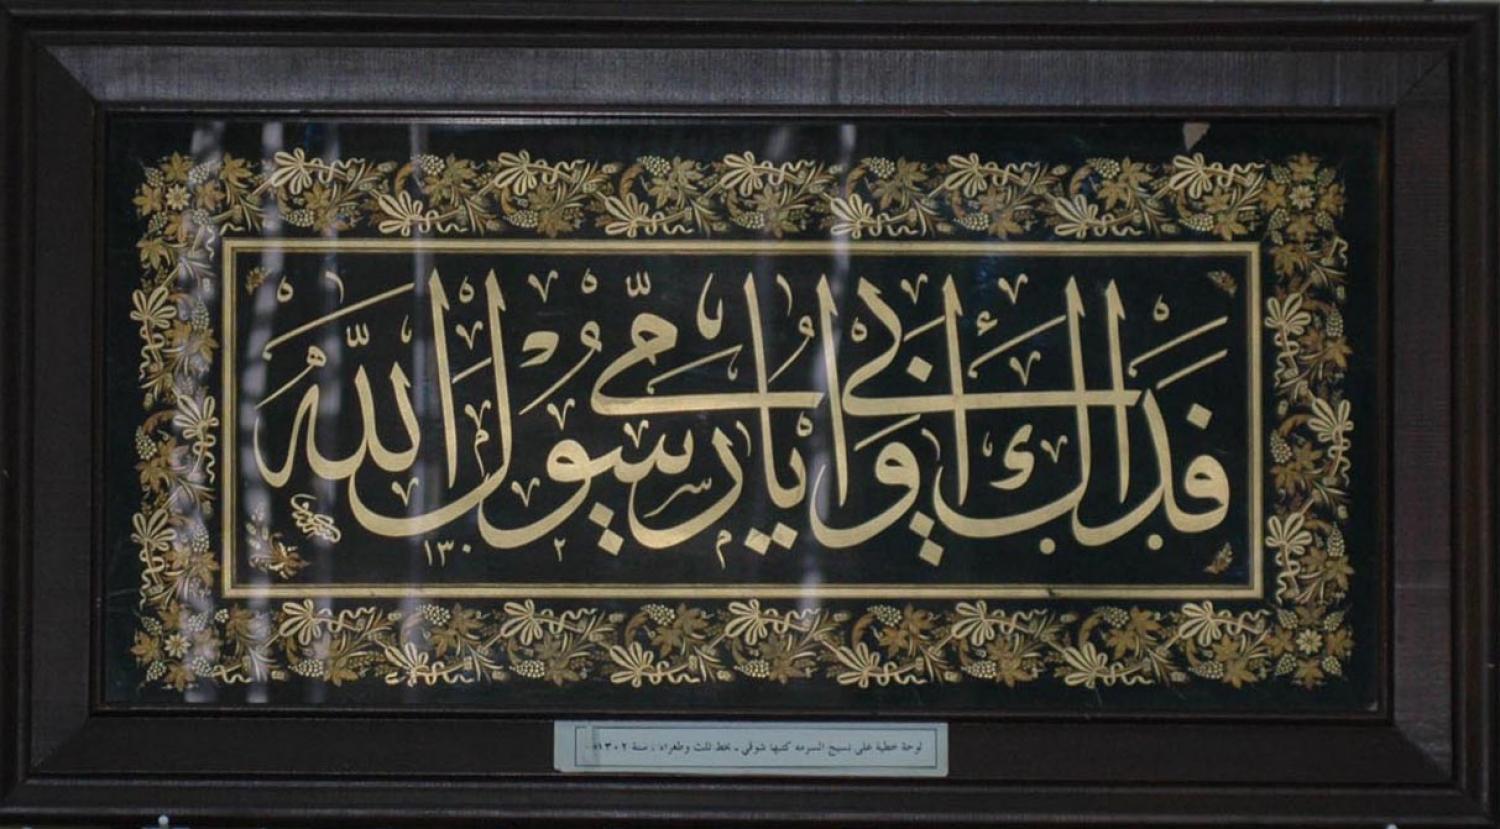 فداك أبي وأمي يا رسول الله
١٣٠٢
لوحة خطية على نسيج السرمه كتبها شوقي ـ بخط ثلث وطغراء ، سنة ١٣٠٢هـ